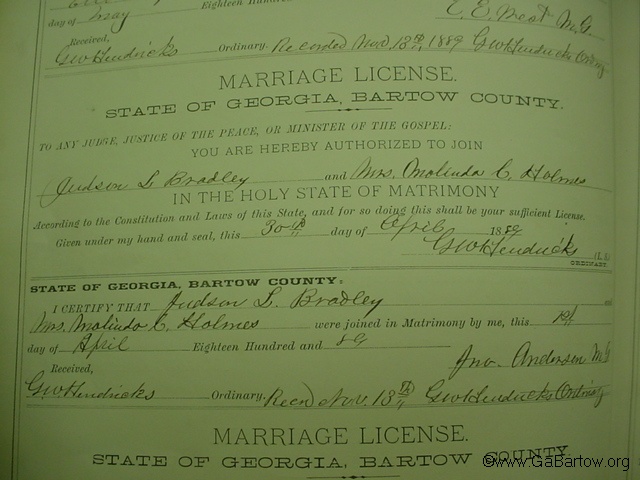 day of May Eighteen Hundred
E. E. West M.G.
Received,
GW Hendricks Ordinary. Recorded Nov. 13th, 1889 GW Hendricks Ordny
MARRIAGE LICENSE.
STATE OF GEORGIA, BARTOW COUNTY.
TO ANY JUDGE, JUSTICE OF THE PEACE, OR MINISTER OF THE GOSPEL:
YOU ARE HEREBY AUTHORIZED TO JOIN
Judson L Bradley and Mrs. Malinda C. Holmes
IN THE HOLY STATE OF MATRIMONY
According to the Constitution and Laws of this State, and for so doing this shall be your sufficient License.
Given under my hand and seal, this 30th day of April 1889
GW Hendricks (L.S.)
ORDINARY.
STATE OF GEORGIA, BARTOW COUNTY:
I CERTIFY THAT Judson L. Bradley and
Mrs. Malinda C. Holmes were joined in Matrimony by me, this
day of April Eighteen Hundred and 89
Jno. Anderson M.G
Received,
GW. Hendricks Ordinary. Recd Nov. 13th GW Hendricks Ordinary
MARRIAGE LICENSE.
STATE OF GEORGIA, BARTOW COUNTY.
©www.GaBartow.org